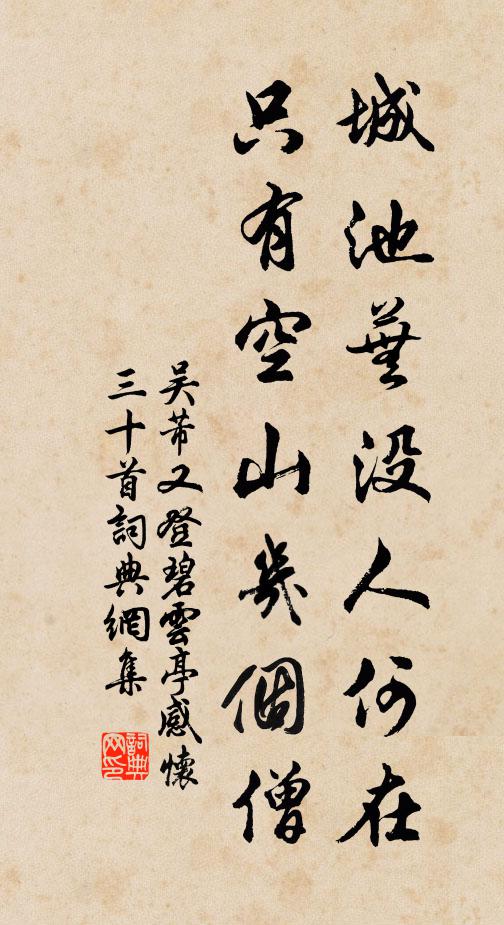 城池蕪没人何在
只有空山幾個僧
吳芾又登碧雲亭感懷
三十首詞典網集
詞典網印